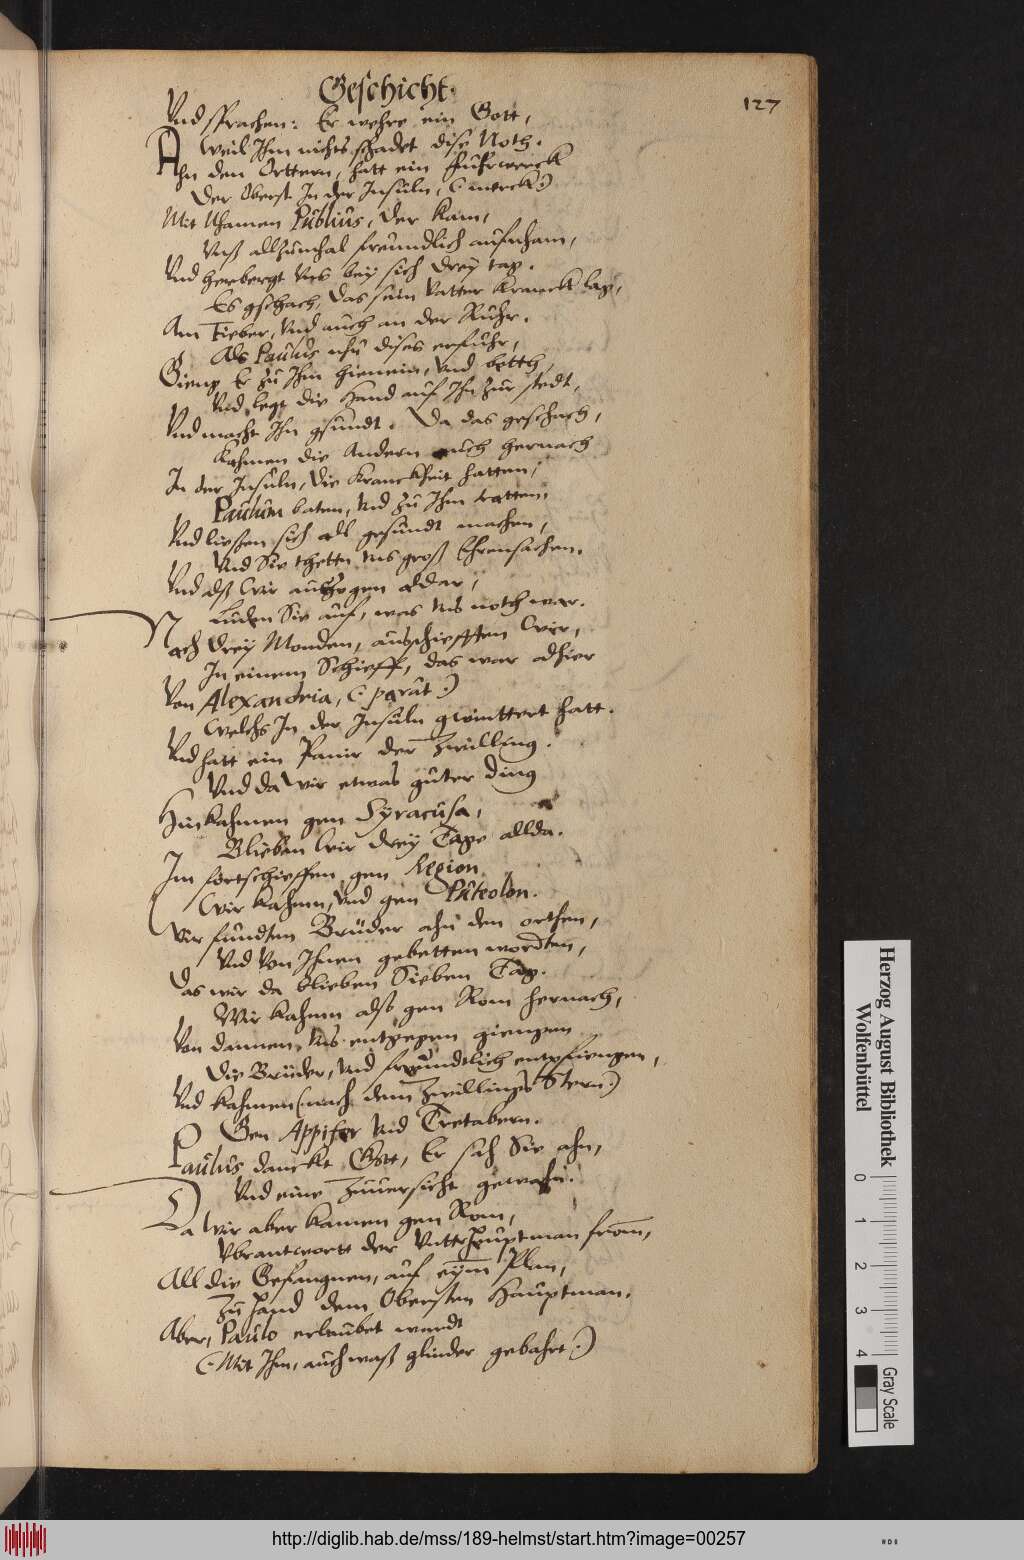 Geschicht.
127
Vnd sprachen: Er wehre ein Gott,
Weil Ihm nichts schadet dise Noth.
Ahn den Orttern, hatt ein fuhrwerck
Der Oberst In der Insuln, (: merck:)
Mit Nhamen Publius, der kam,
Vnß allzumhal freundlich aufnham,
Vnd herbergt Vns bey sich drey tag.
Es gschach, das sein Vatter kranck lag,
Am Fieber, Vnd auch an der Ruhr.
Als Paulus nhu dises erfuhr,
Gieng Er zu Ihm hienein, Vnd betth,
Vnd legt die Hand auf Ihn zur stedt,
Vnd macht Ihn gsundt. Da das geschach,
Kahmen die Andern auch hernach
In der Insuln, die Kranckheit hatten,
Paulum baten, Vnd zu Ihm tratten,
Vnd liessen sich all gesundt machen,
Vnd Sie thetten Vns groß Ehrensachen.
Vnd alß Wir außzogen aldar,
Luden Sie auf, was Vns noth war.
Nach drey Monden, außschiefften Wir,
In einem Schieff, das war alhier
Von Alexandria, (: parat:)
Welchs In der Insuln gwinttert hatt.
Vnd hatt ein Panir der Zwilling.
Vnd da Wir etwas guter ding
Hinkahmen gen Syracusa,
Blieben Wir drey Tage allda.
Im fortschieffen gen Region
Wir kahmen, Vnd gen Puteolon.
Wir fundten Brüder ahn den orthen,
Vnd Von Ihnen gebetten wordten,
Das wir da blieben Sieben Tag.
Wir kahmen also gen Rom hernach,
Von dannen Vns entgegen giengen
Die Brüder, Vnd freundtlich entpfiengen,
Vnd kahmen (nach dem Zwillings Stern:)
Gen Appifer Vnd Tretabern.
Paulus danckt Gott, Er sah Sie ahn,
Vnd eine Zuuersicht gewahn.
Da Wir aber kamen gen Rom,
Vbrantwortt der Vntterhauptman from,
All die Gefangnen, auf eym Plan,
Zu Hand dem Obersten Hauptman.
Aber, Paulo erlaubet werdt
(: Mit Ihm, auch waß glinder gebahrt:)
Herzog August Bibliothek
Wolfenbüttel
0 1 2 3 4
Gray Scale
http://diglib.hab.de/mss/189-helmst/start.htm?image=00257